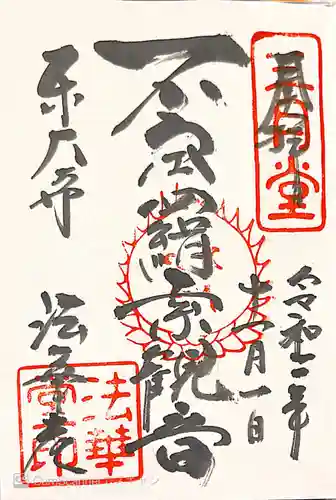 奉拝
三月堂
令和二年
十一月一日
不空羂索観音
東大寺
法華堂
法華堂印